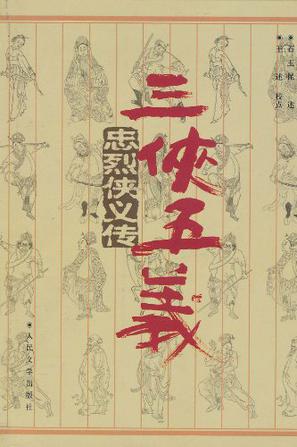 石玉昆 述
王述 校点
三侠五義
忠烈侠义传
人民文学出版社